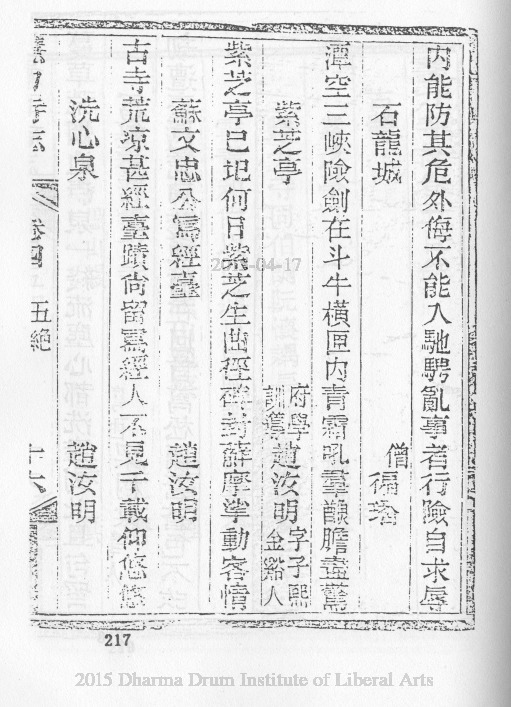 內能防其危外侮不能入馳騁亂真者行險自求辱
石龍城 僧 福
潭空三峽險劍在斗牛橫匣內青霜吼羣醜膽盡驚
紫芝亭 府學訓導趙汝明 字子熙金谿人
紫芝亭已圮何日紫芝生幽徑碑封蘚摩挲動客情
蘇文忠公寫經臺 趙汝明
古寺荒凉甚經臺蹟尙留寫經人不見千載仰悠悠
洗心泉 趙汝明
寺志 卷四 五絕 十六
217
2015 Dharma Drum Institute of Liberal Arts